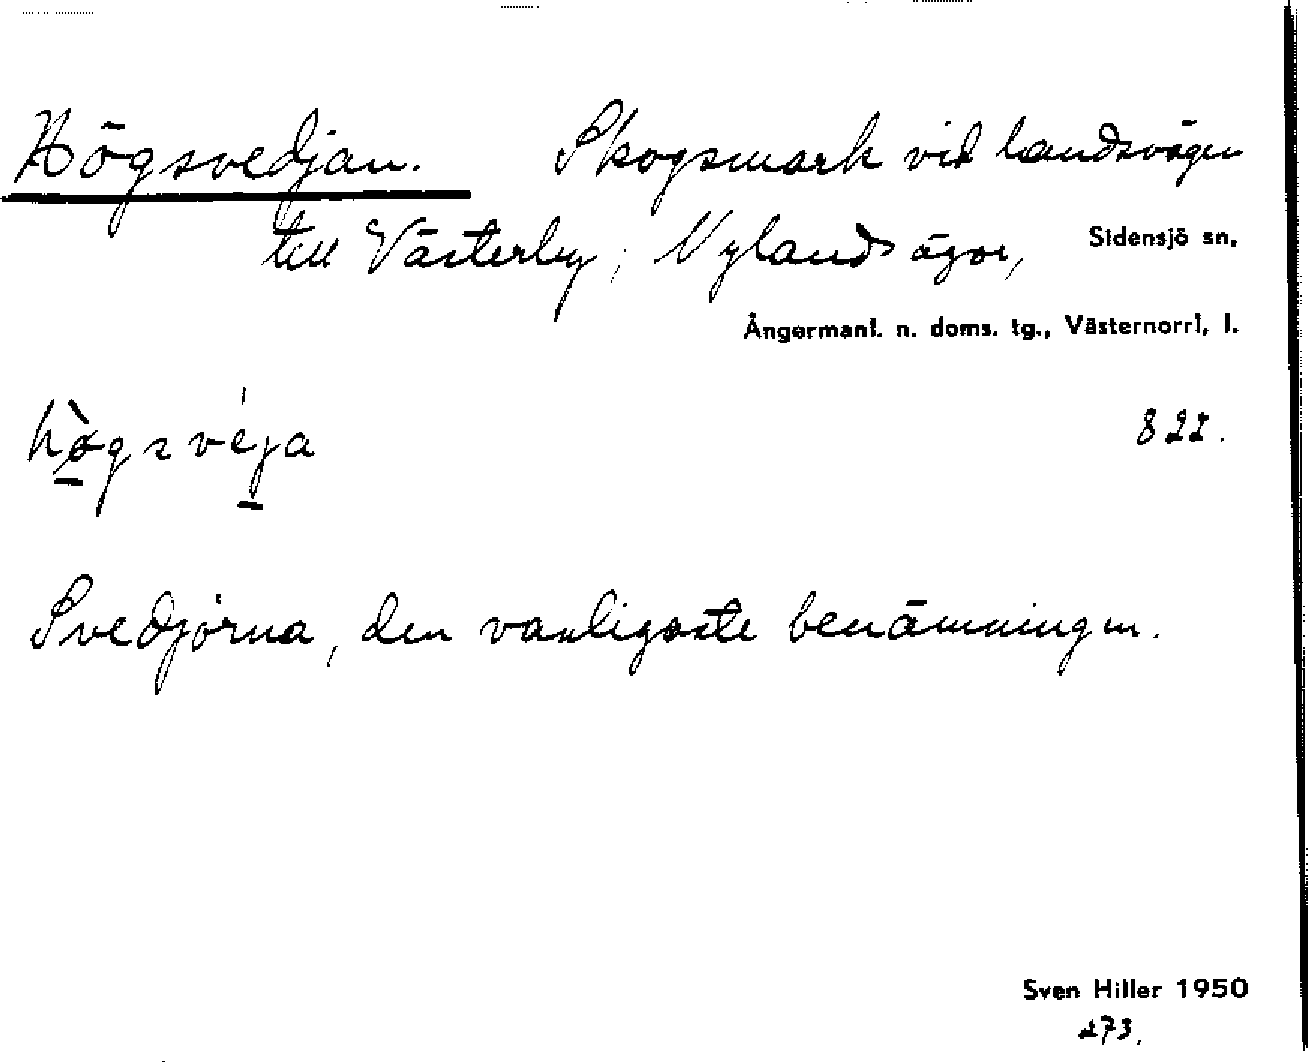 Högsvedjan. Skogsmark vid landsvägen
till Västerby; Nylands ägor, Sidensjö sn,
Ångermanl. n. doms. tg., Västernorrl, l.
hø̀gsvéja 822.
Svedjórna, den vanligaste benämningen.
Sven Hiller 1950
273.